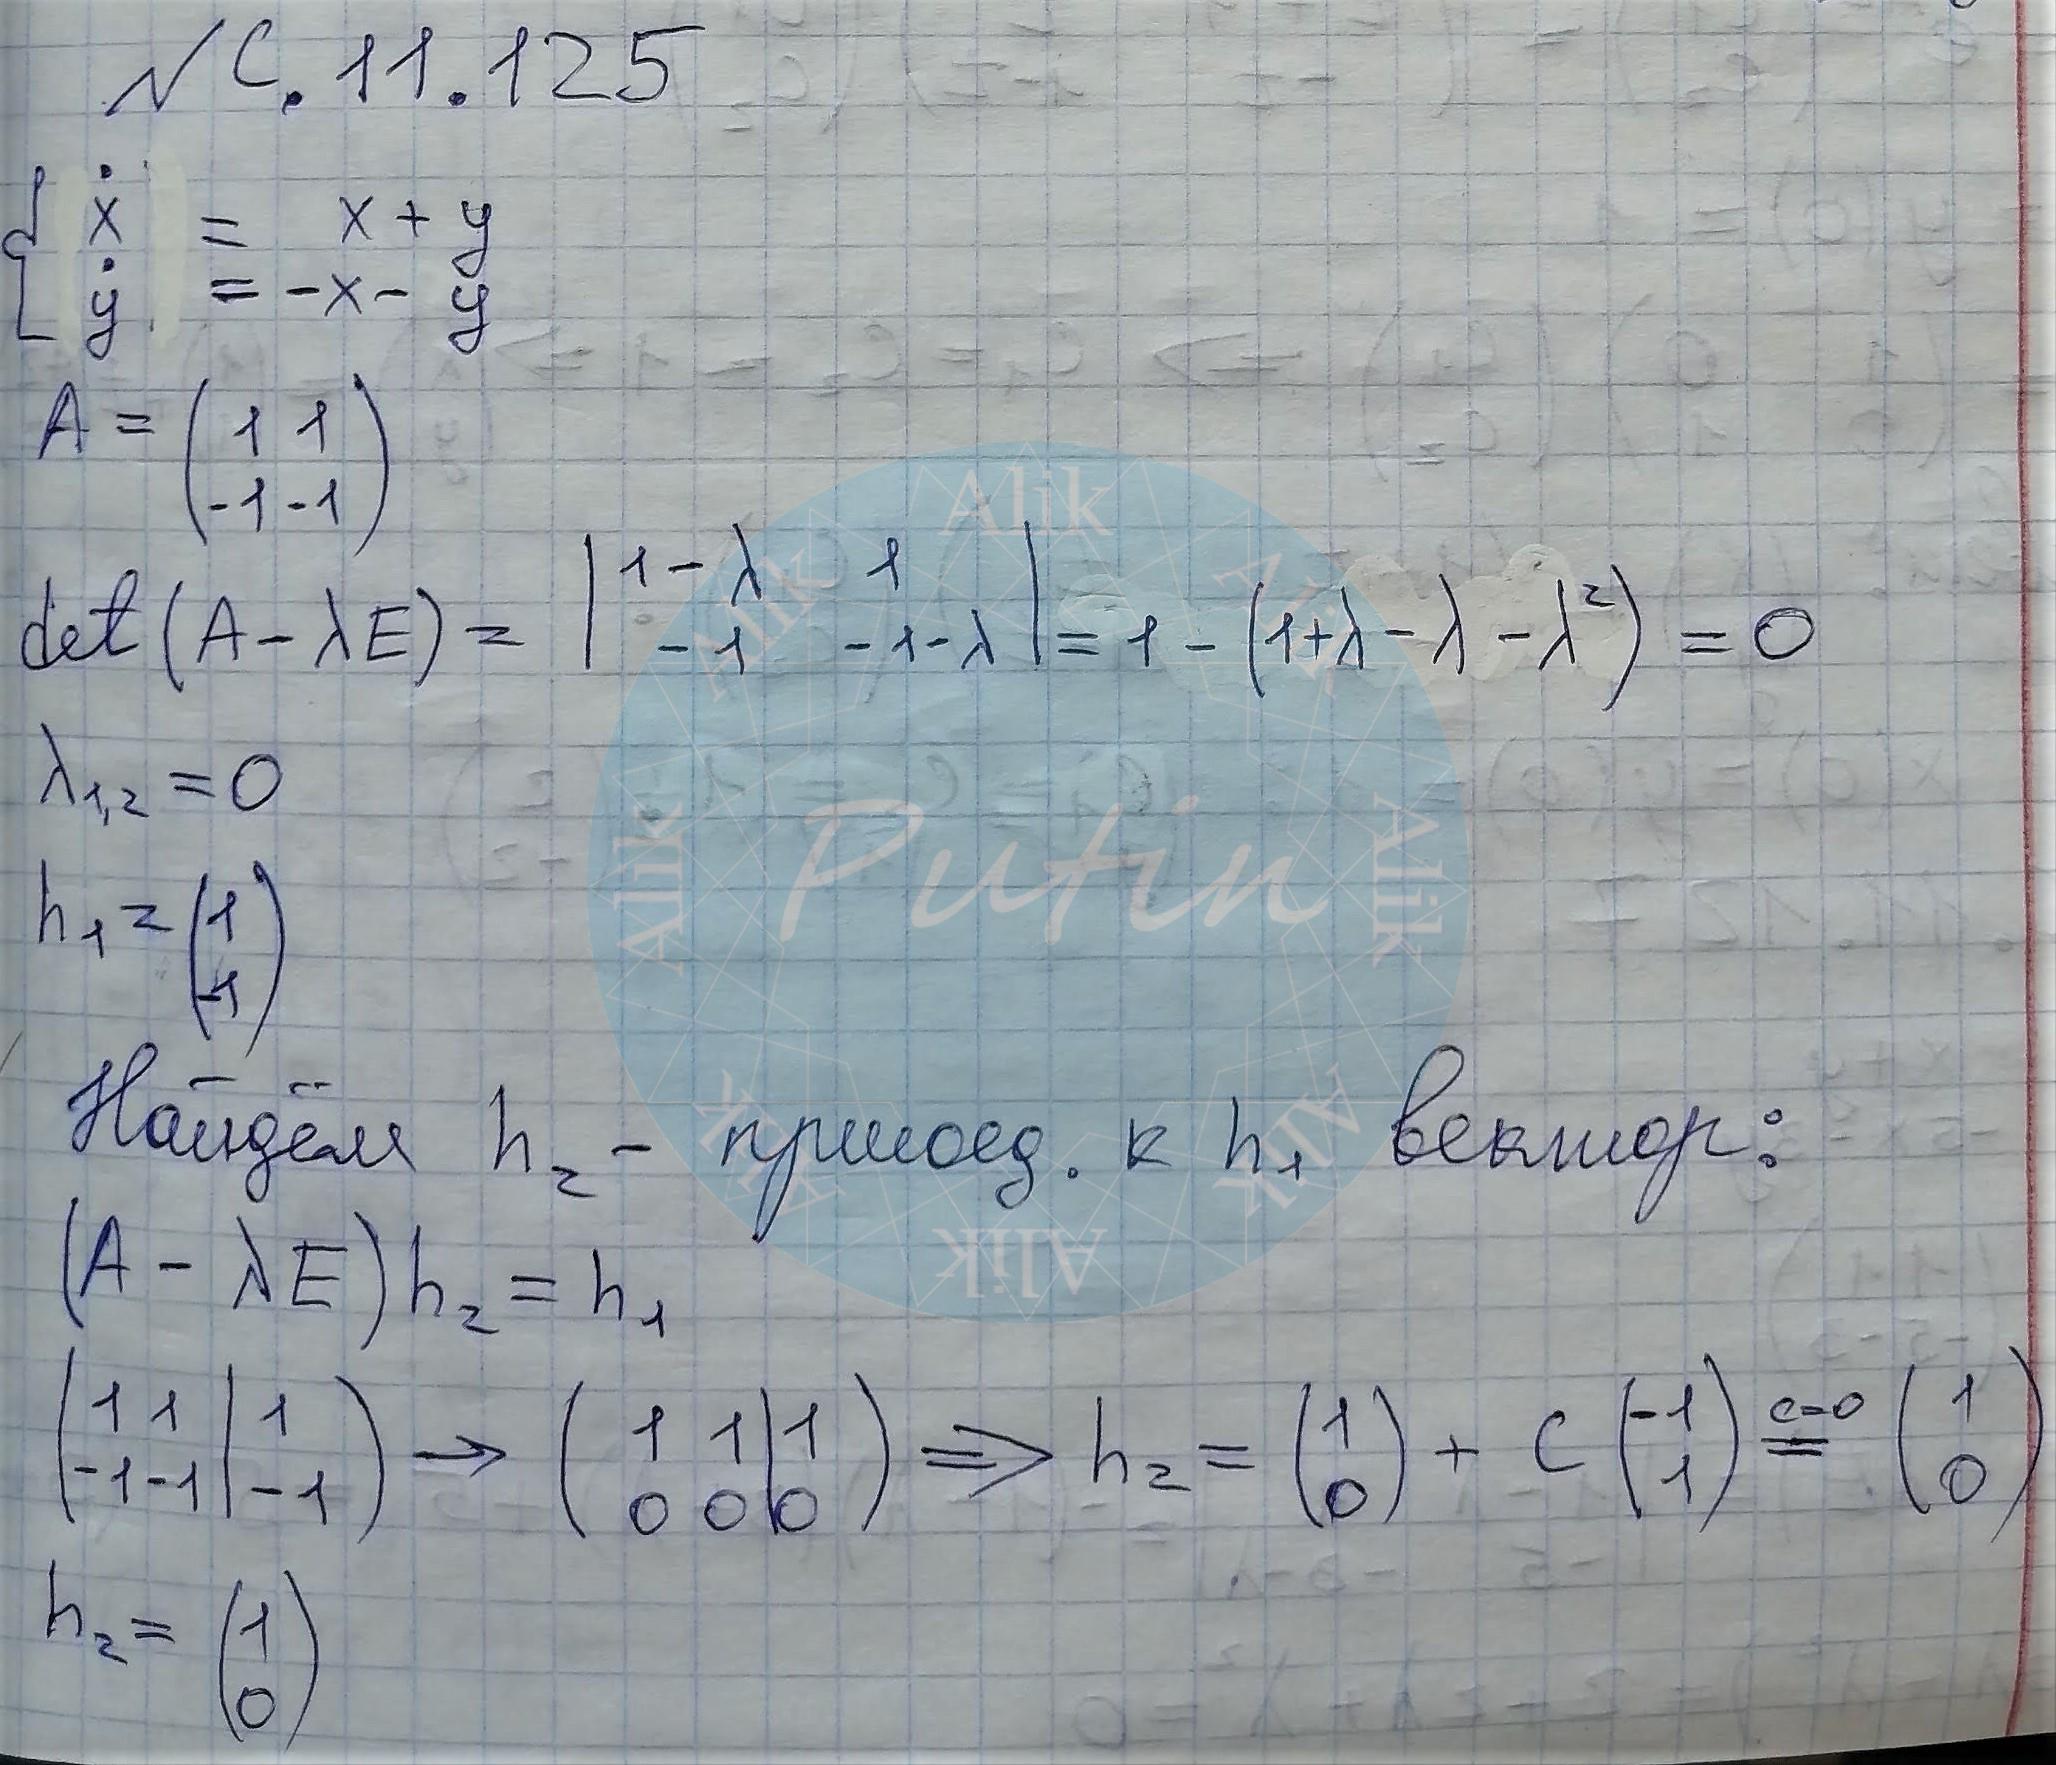 № С.11.125
{ ẋ = x + y
ẏ = -x - y
A = (1 1
-1 -1)
det(A - λE) = |1-λ 1
-1 -1-λ| = 1 - (1+λ-λ-λ²) = 0
λ₁,₂ = 0
h₁ = (1
-1)
Найдём h₂ - присоед. к h₁ вектор:
(A - λE)h₂ = h₁
(1 1 | 1
-1 -1 | -1) → (1 1 | 1
0 0 | 0) ⇒ h₂ = (1
0) + C (-1
1) c=0 = (1
0)
h₂ = (1
0)
Alik
Alik
Alik
Alik
Alik
Alik
Alik
Alik
Putin